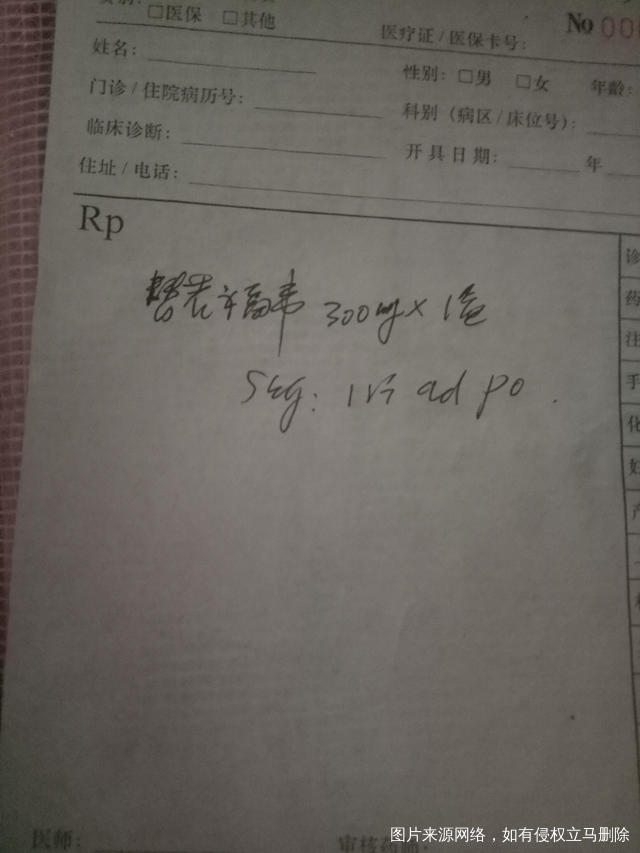 □医保 □其他
医疗证/医保卡号: No 00
姓名:
性别: □男 □女 年龄:
门诊/住院病历号:
科别(病区/床位号):
临床诊断:
开具日期: 年
住址/电话:
Rp
替诺福韦 300mg×1盒
Sig: 1片 qd po.
诊
药
注
手
化
医师:
审核药师:
图片来源网络，如有侵权立马删除